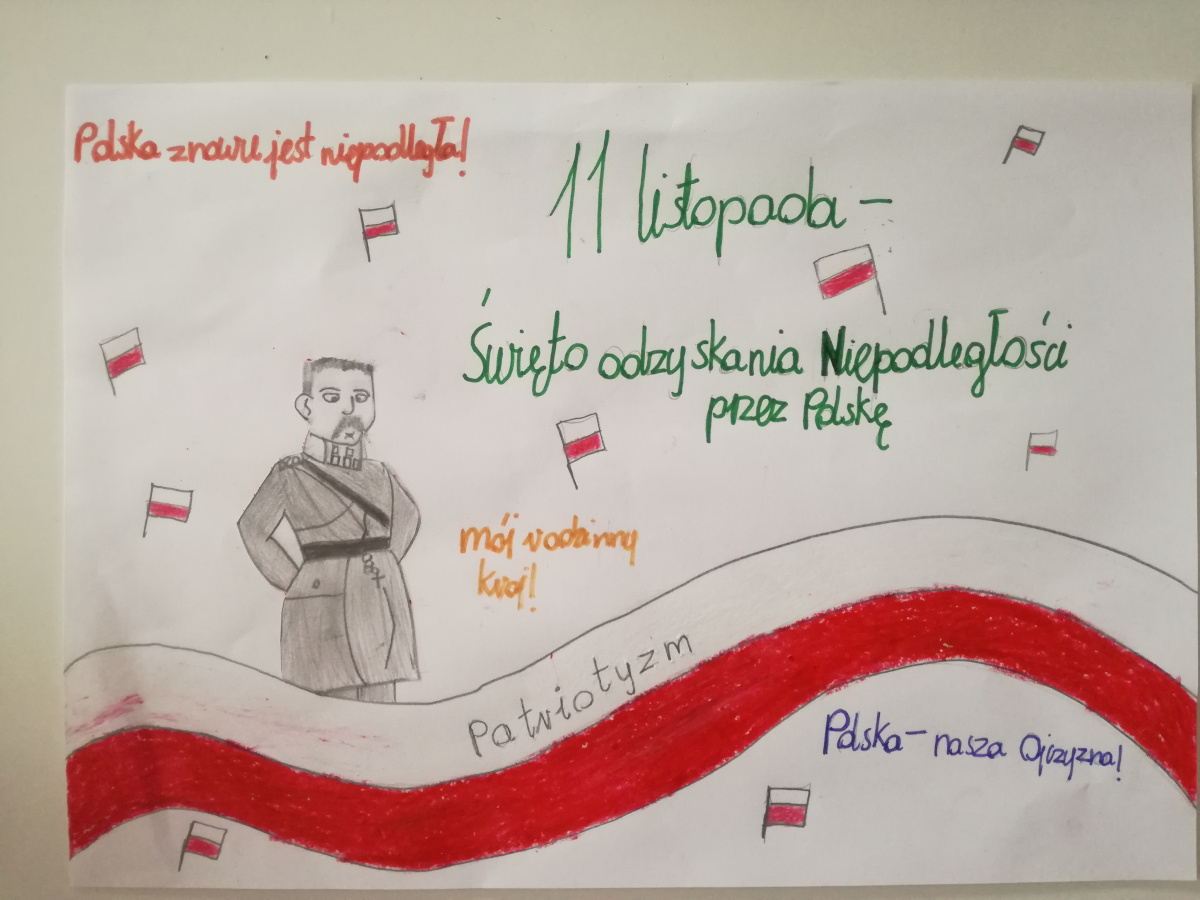 Polska znowu jest niepodległa!
11 listopada -
Święto odzyskania Niepodległości
przez Polskę
mój rodzinny
kraj!
Patriotyzm
Polska - nasza Ojczyzna!